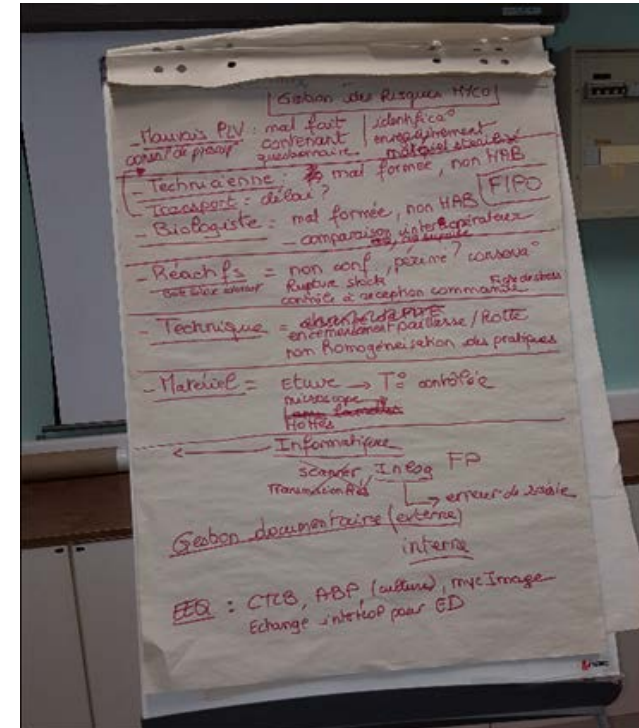 Gestion des Risques MYCO
- Mauvais PLV : mal fait
contenant
questionnaire
identifica°
enregistrement
matériel stérilisé
- Technicienne : mal formée, non HAB
- Transport : délai ?
FIFO
- Biologiste : mal formée, non HAB
- comparaison interopérateur
- Réactifs = non conf, périmé ? conserva°
Rupture stock
contrôle à réception commande
- Technique =
encensement paillasse / Hotte
non homogénéisation des pratiques
- Matériel = Etuve → T° contrôlée
microscope
Hottes
← Informatique
scanner Inlog FP
Transmission
→ erreur de saisie
Gestion documentaire (externe)
interne
EEQ : CTCB, ABP (culture), mycImage
Echange interop pour ED